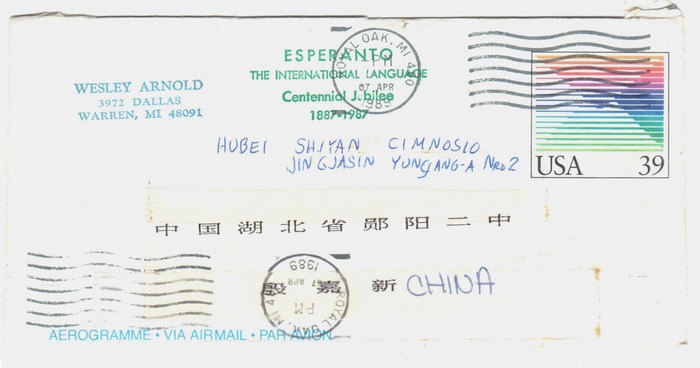 ESPERANTO
THE INTERNATIONAL LANGUAGE
Centennial Jubilee
1887-1987
ROYAL OAK, MI 480
PM
07 APR
1989
WESLEY ARNOLD
3972 DALLAS
WARREN, MI 48091
USA 39
HUBEI SHIYAN CIMNOSIO
JINGJASIN YUNGJANG-A NRO 2
中国湖北省郧阳二中
殷嘉新 CHINA
ROYAL OAK, MI 480
PM
07 APR
1989
AEROGRAMME • VIA AIRMAIL • PAR AVION